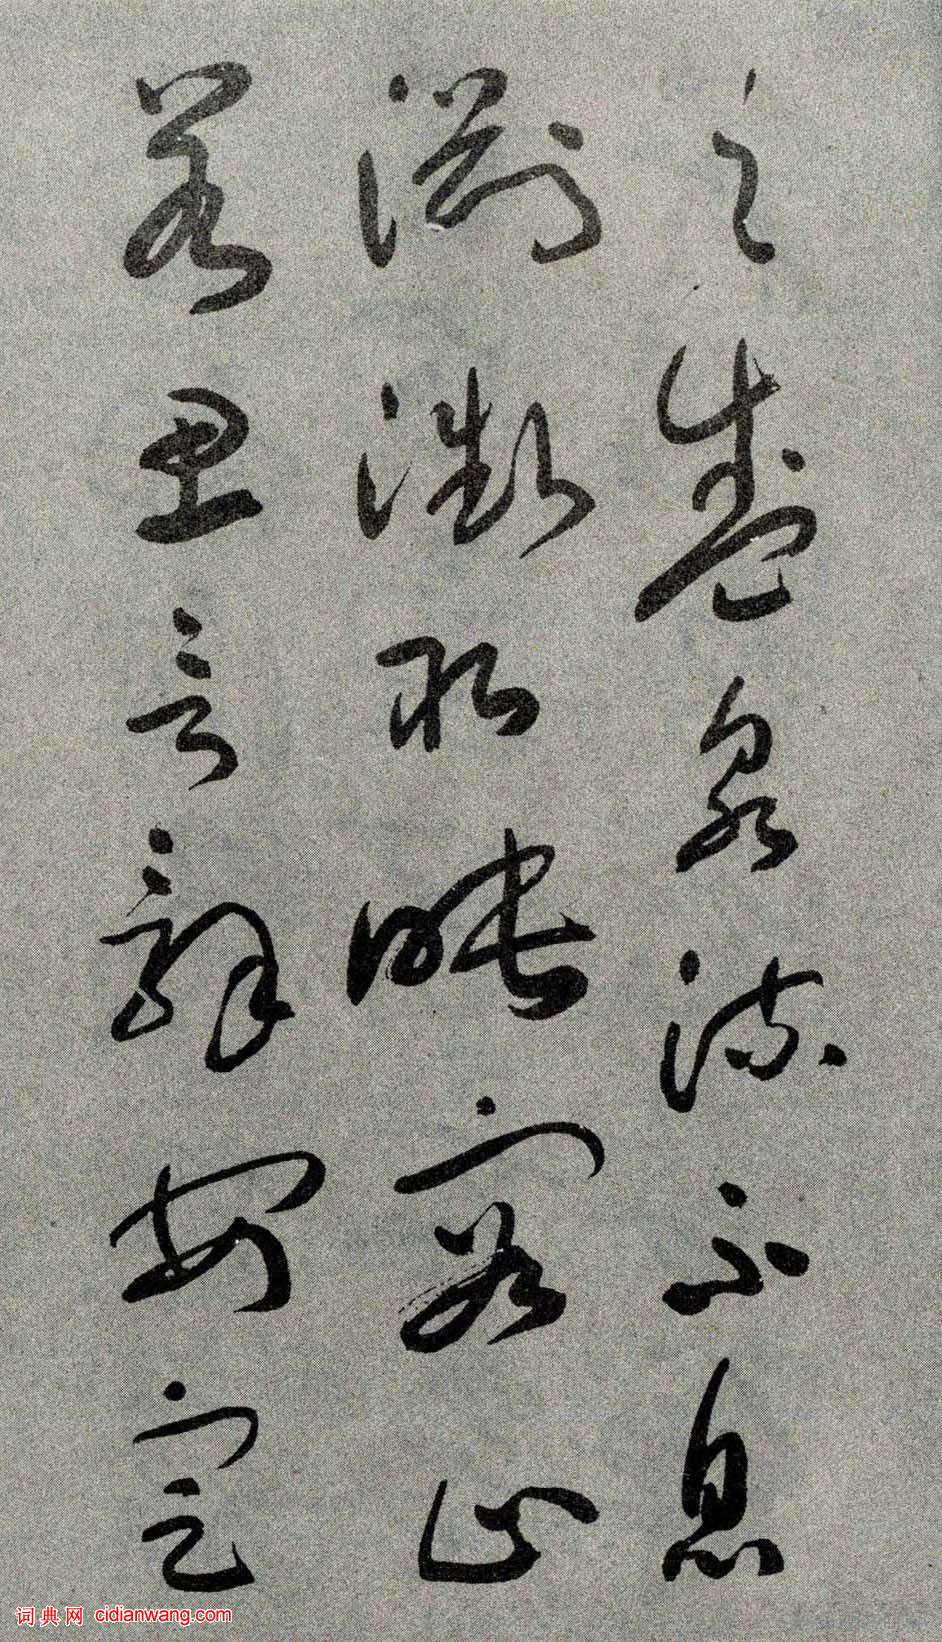 之盛泉流不息
淵澂取暎容止
若思言辭安定
词典网 cidianwang.com